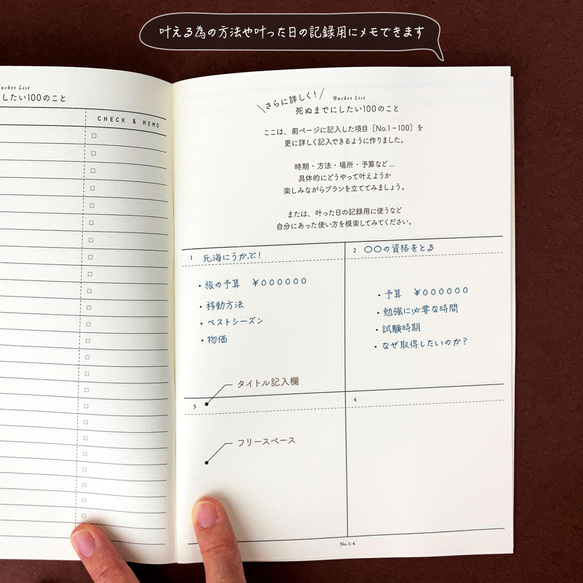 叶える為の方法や叶った日の記録用にメモできます
Bucket List
にしたい100のこと
CHECK & MEMO
さらに詳しく!
Bucket List
死ぬまでにしたい100のこと
ここは、前ページに記入した項目［No.1~100］を
更に詳しく記入できるように作りました。
時期・方法・場所・予算など...
具体的にどうやって叶えようか
楽しみながらプランを立ててみましょう。
または、叶った日の記録用に使うなど
自分にあった使い方を模索してみてください。
1 死海にうかぶ!
・旅の予算 ¥○○○○○○
・移動方法
・ベストシーズン
・物価
2 ○○の資格をとる
・予算 ¥○○○○○○
・勉強に必要な時間
・試験時期
・なぜ取得したいのか?
タイトル記入欄
3
フリースペース
4
No.1-4